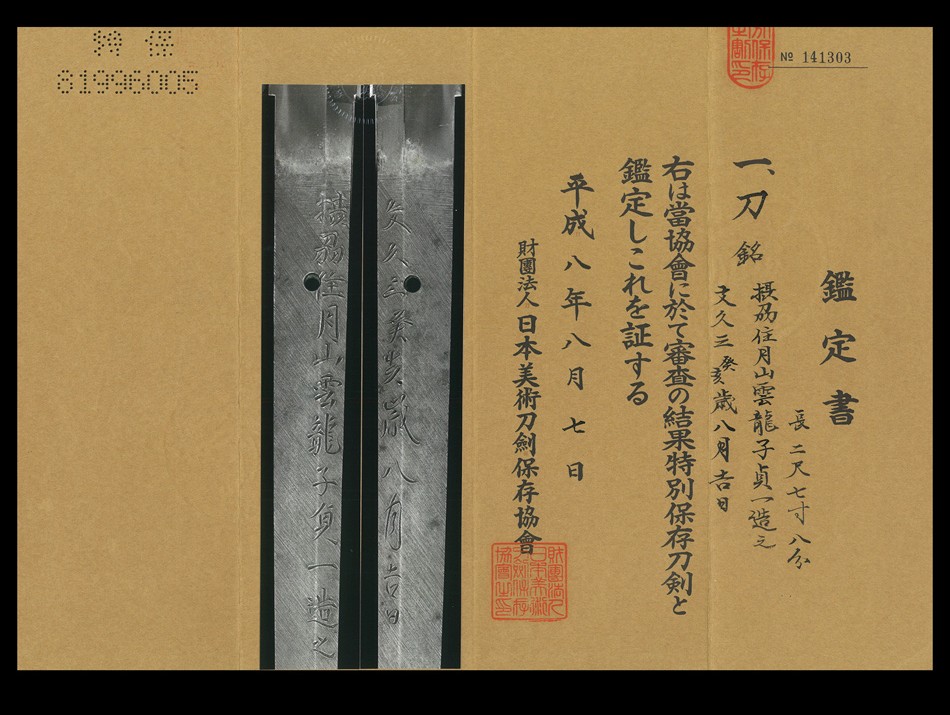 鑑定書
長二尺七寸八分
一、刀 銘 摂刕住月山雲龍子貞一造之
文久三癸亥歳八月吉日
右は當協會に於て審査の結果特別保存刀剣と
鑑定しこれを証する
平成八年八月七日
財團法人日本美術刀劍保存協會
№ 141303
特保
81996005
文久三癸亥歳八月吉日
摂刕住月山雲龍子貞一造之